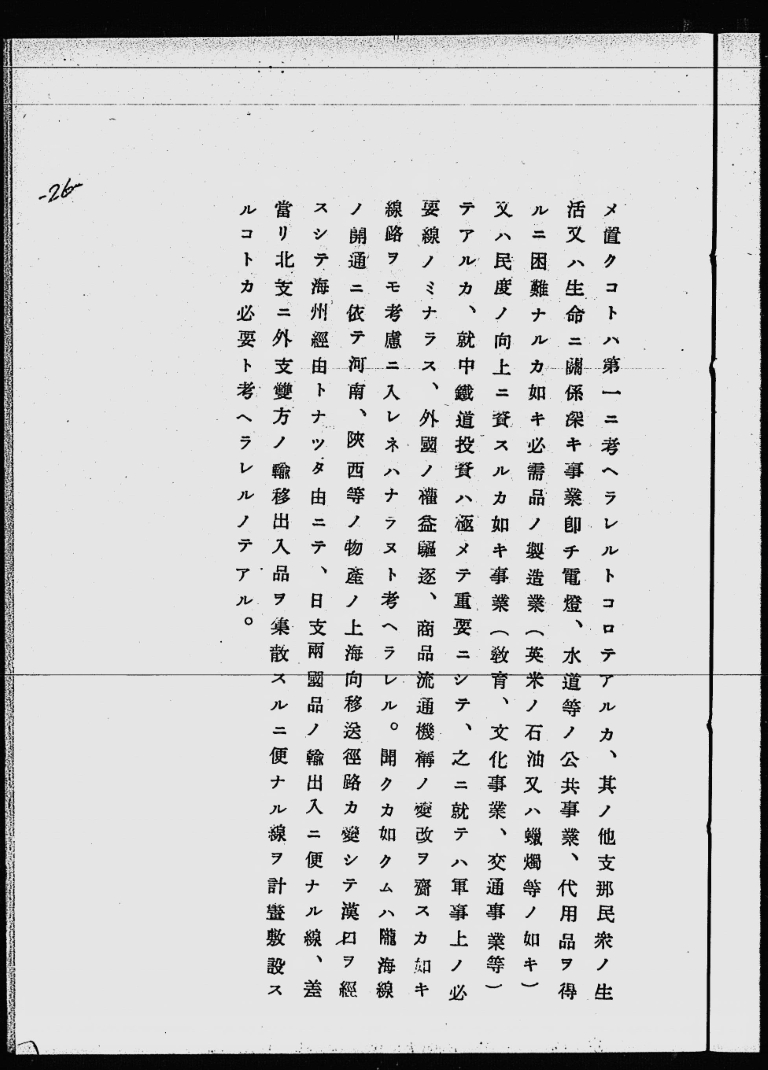 メ置クコトハ第一ニ考ヘラレルトコロテアルカ、其ノ他支那民衆ノ生
活又ハ生命ニ關係深キ事業卽チ電燈、水道等ノ公共事業、代用品ヲ得
ルニ困難ナルカ如キ必需品ノ製造業（英米ノ石油又ハ蠟燭等ノ如キ）
又ハ民度ノ向上ニ資スルカ如キ事業（敎育、文化事業、交通事業等）
テアルカ、就中鐵道投資ハ極メテ重要ニシテ、之ニ就テハ軍事上ノ必
要線ノミナラス、外國ノ權益驅逐、商品流通機構ノ變改ヲ齎スカ如キ
線路ヲモ考慮ニ入レネハナラヌト考ヘラレル。聞クカ如クムハ隴海線
ノ開通ニ依テ河南、陝西等ノ物產ノ上海向移送徑路カ變シテ漢口ヲ經
スシテ海州經由トナツタ由ニテ、日支兩國品ノ輸出入ニ便ナル線、差
當リ北支ニ外支雙方ノ輸移出入品ヲ集散スルニ便ナル線ヲ計畫敷設ス
ルコトカ必要ト考ヘラレルノテアル。
-26-